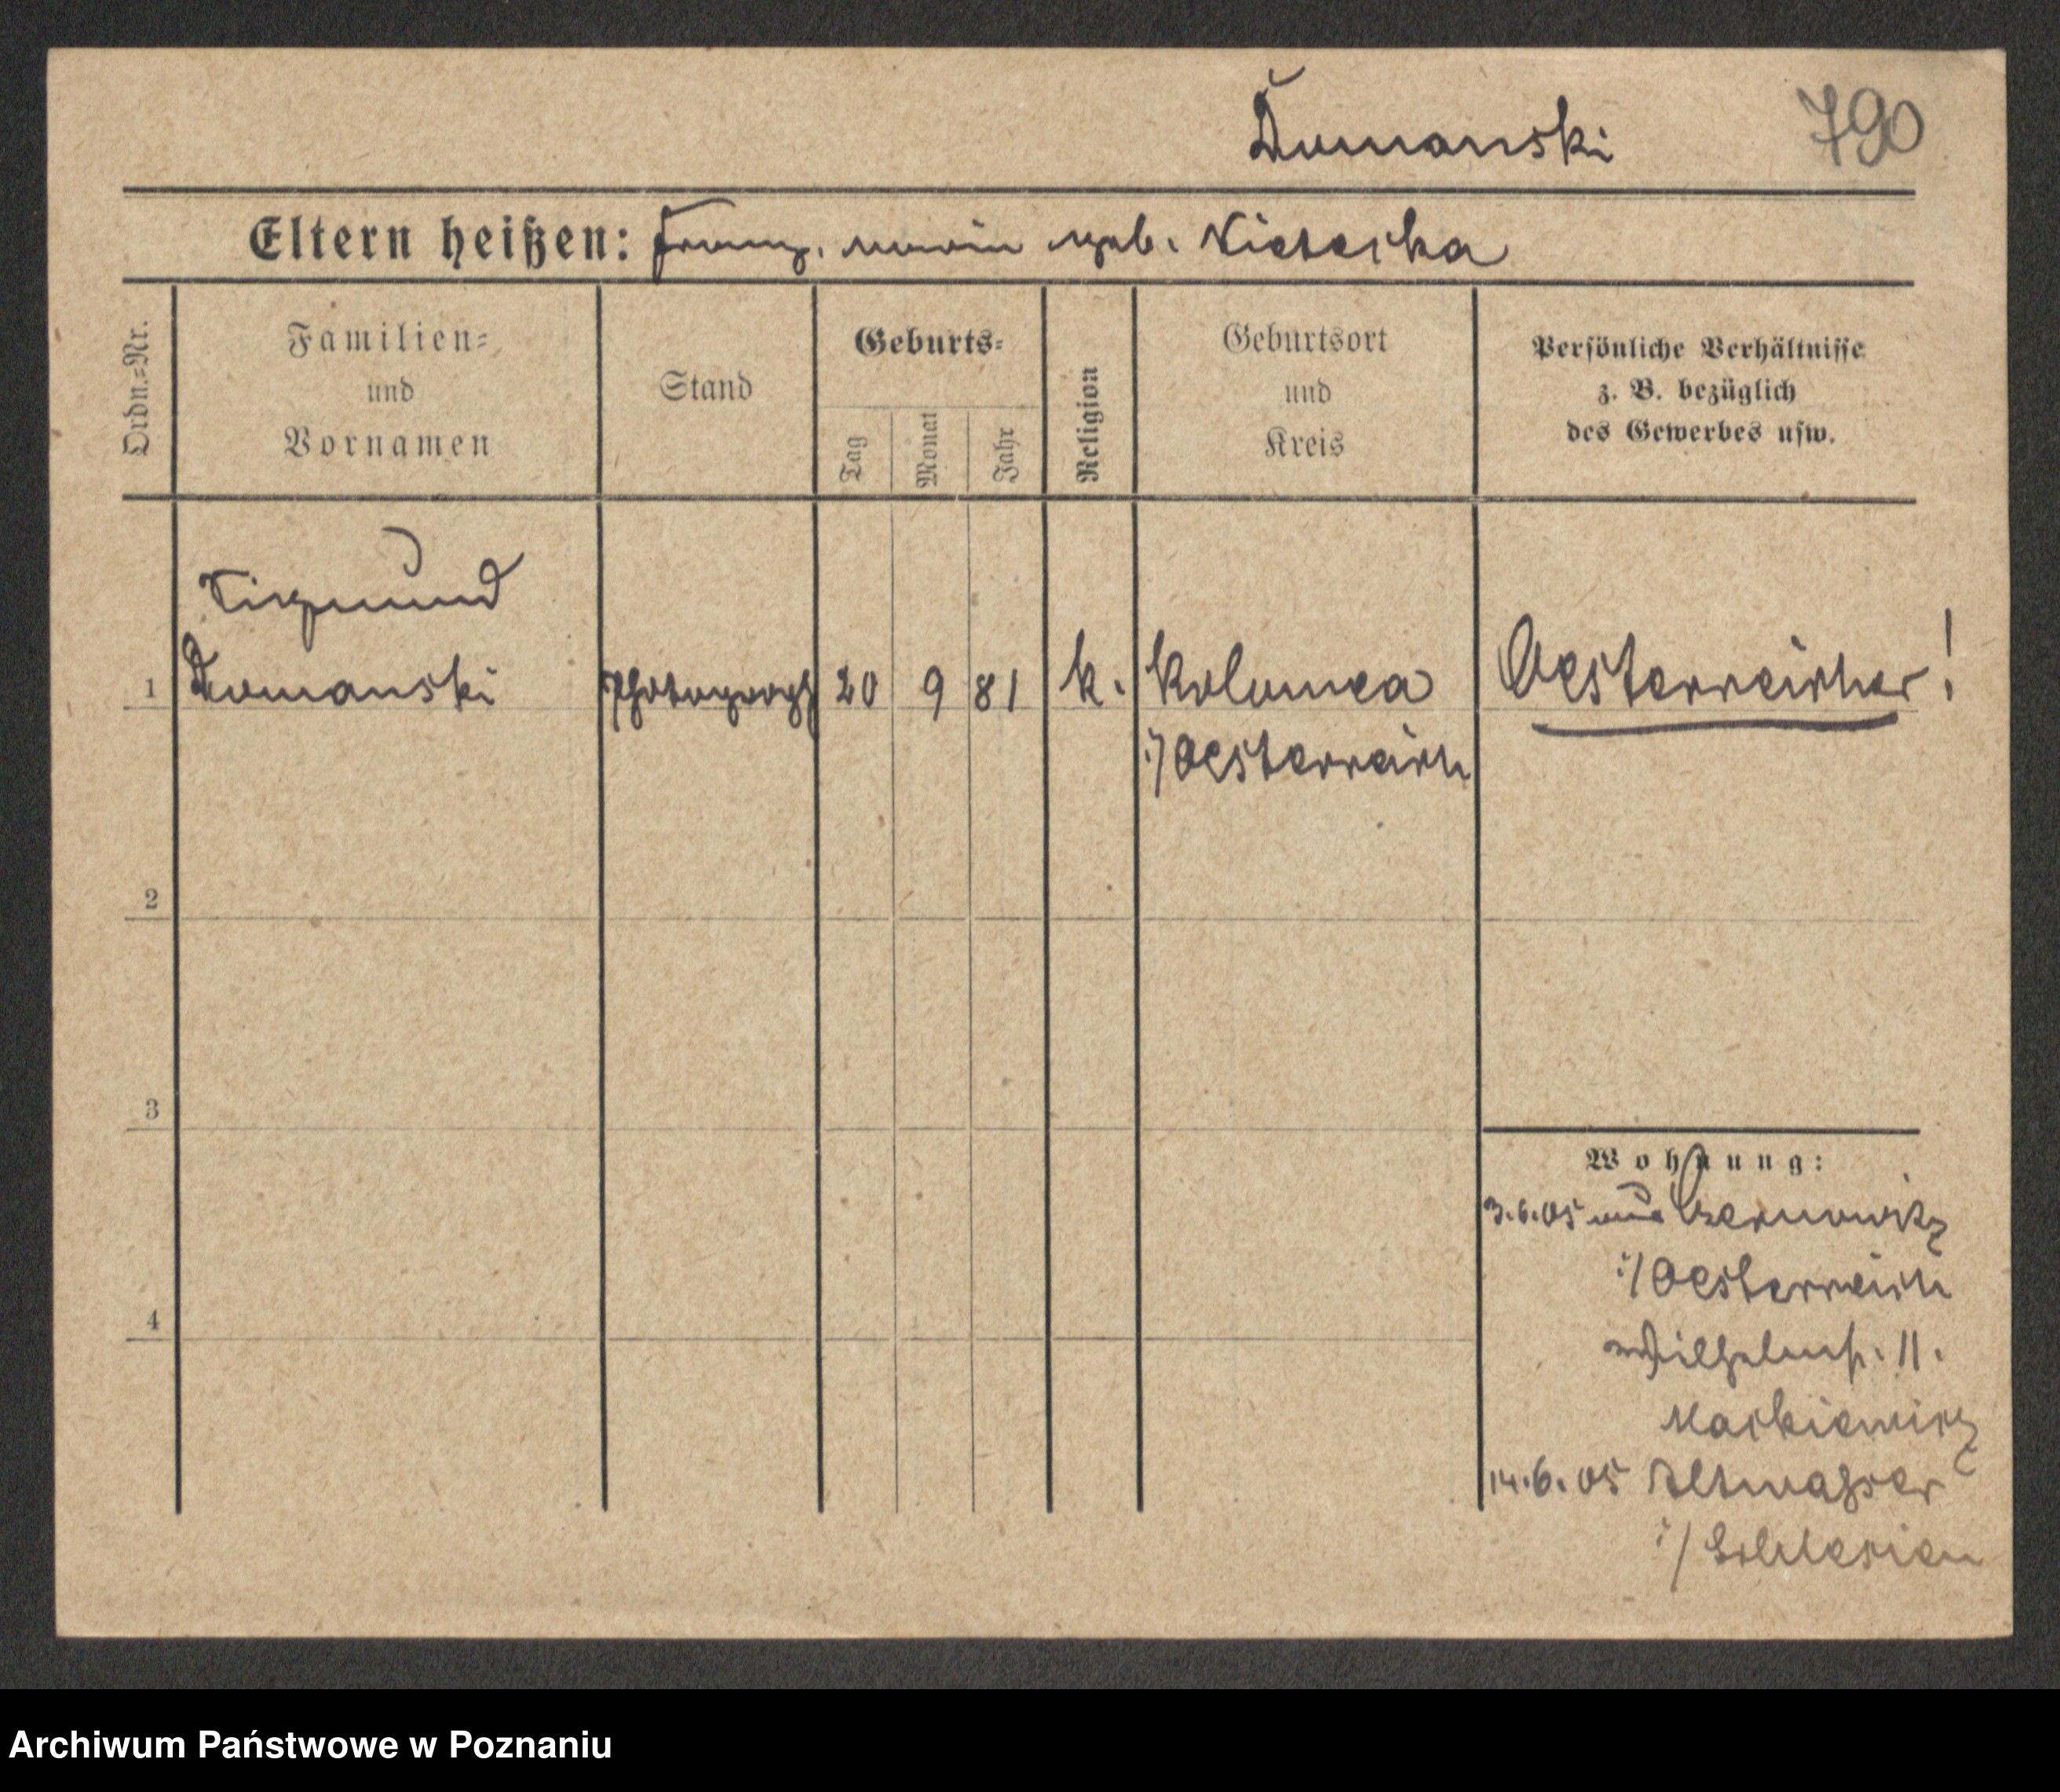 Dumanski 790
Eltern heißen: Franz, Marie geb. Nietecka
Ordn.=Nr.
Familien=
und
Vornamen
Stand
Geburts=
Tag
Monat
Jahr
Religion
Geburtsort
und
Kreis
Persönliche Verhältnisse
z. B. bezüglich
des Gewerbes usw.
Sigmund
1 Dumanski Photograph 20 9 81 k. Kolomea Oesterreicher!
i/Oesterreich
2
3
4
Wohnung:
3.6.05 aus Czernowitz
i/Oesterreich
Wilhelmstr. 11.
Markiewicz
14.6.05 Altwasser
i/Schlesien
Archiwum Państwowe w Poznaniu